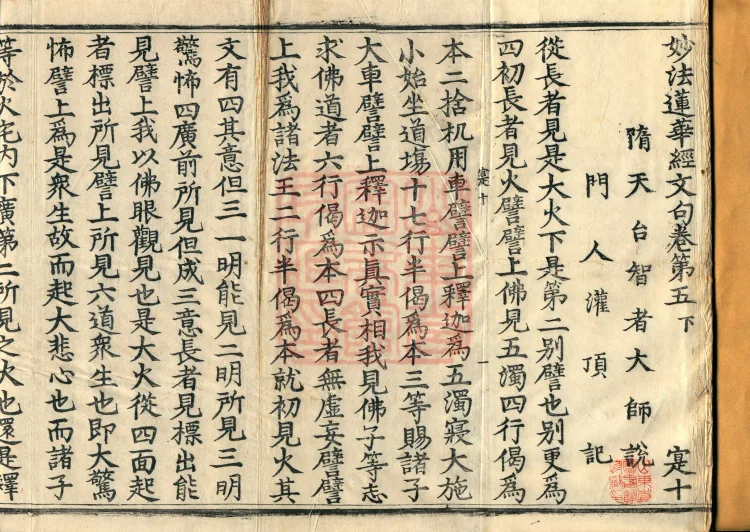 妙法蓮華經文句卷第五下 寔十
隋天台智者大師說
門人灌頂記
從長者見是大火下是第二別譬也別更爲
四初長者見火譬譬上佛見五濁四行偈爲
寔十 一
本二捨机用車譬譬上釋迦爲五濁寢大施
小始坐道場十七行半偈爲本三等賜諸子
大車譬譬上釋迦示真實相我見佛子等志
求佛道者六行偈爲本四長者無虛妄譬譬
上我爲諸法王二行半偈爲本就初見火其
文有四其意但三一明能見二明所見三明
驚怖四廣前所見但成三意長者見標出能
見譬上我以佛眼觀見也是大火從四面起
者標出所見譬上所見六道衆生也即大驚
怖譬上爲是衆生故而起大悲心也而諸子
等於火宅內下廣第二所見之火也還是釋